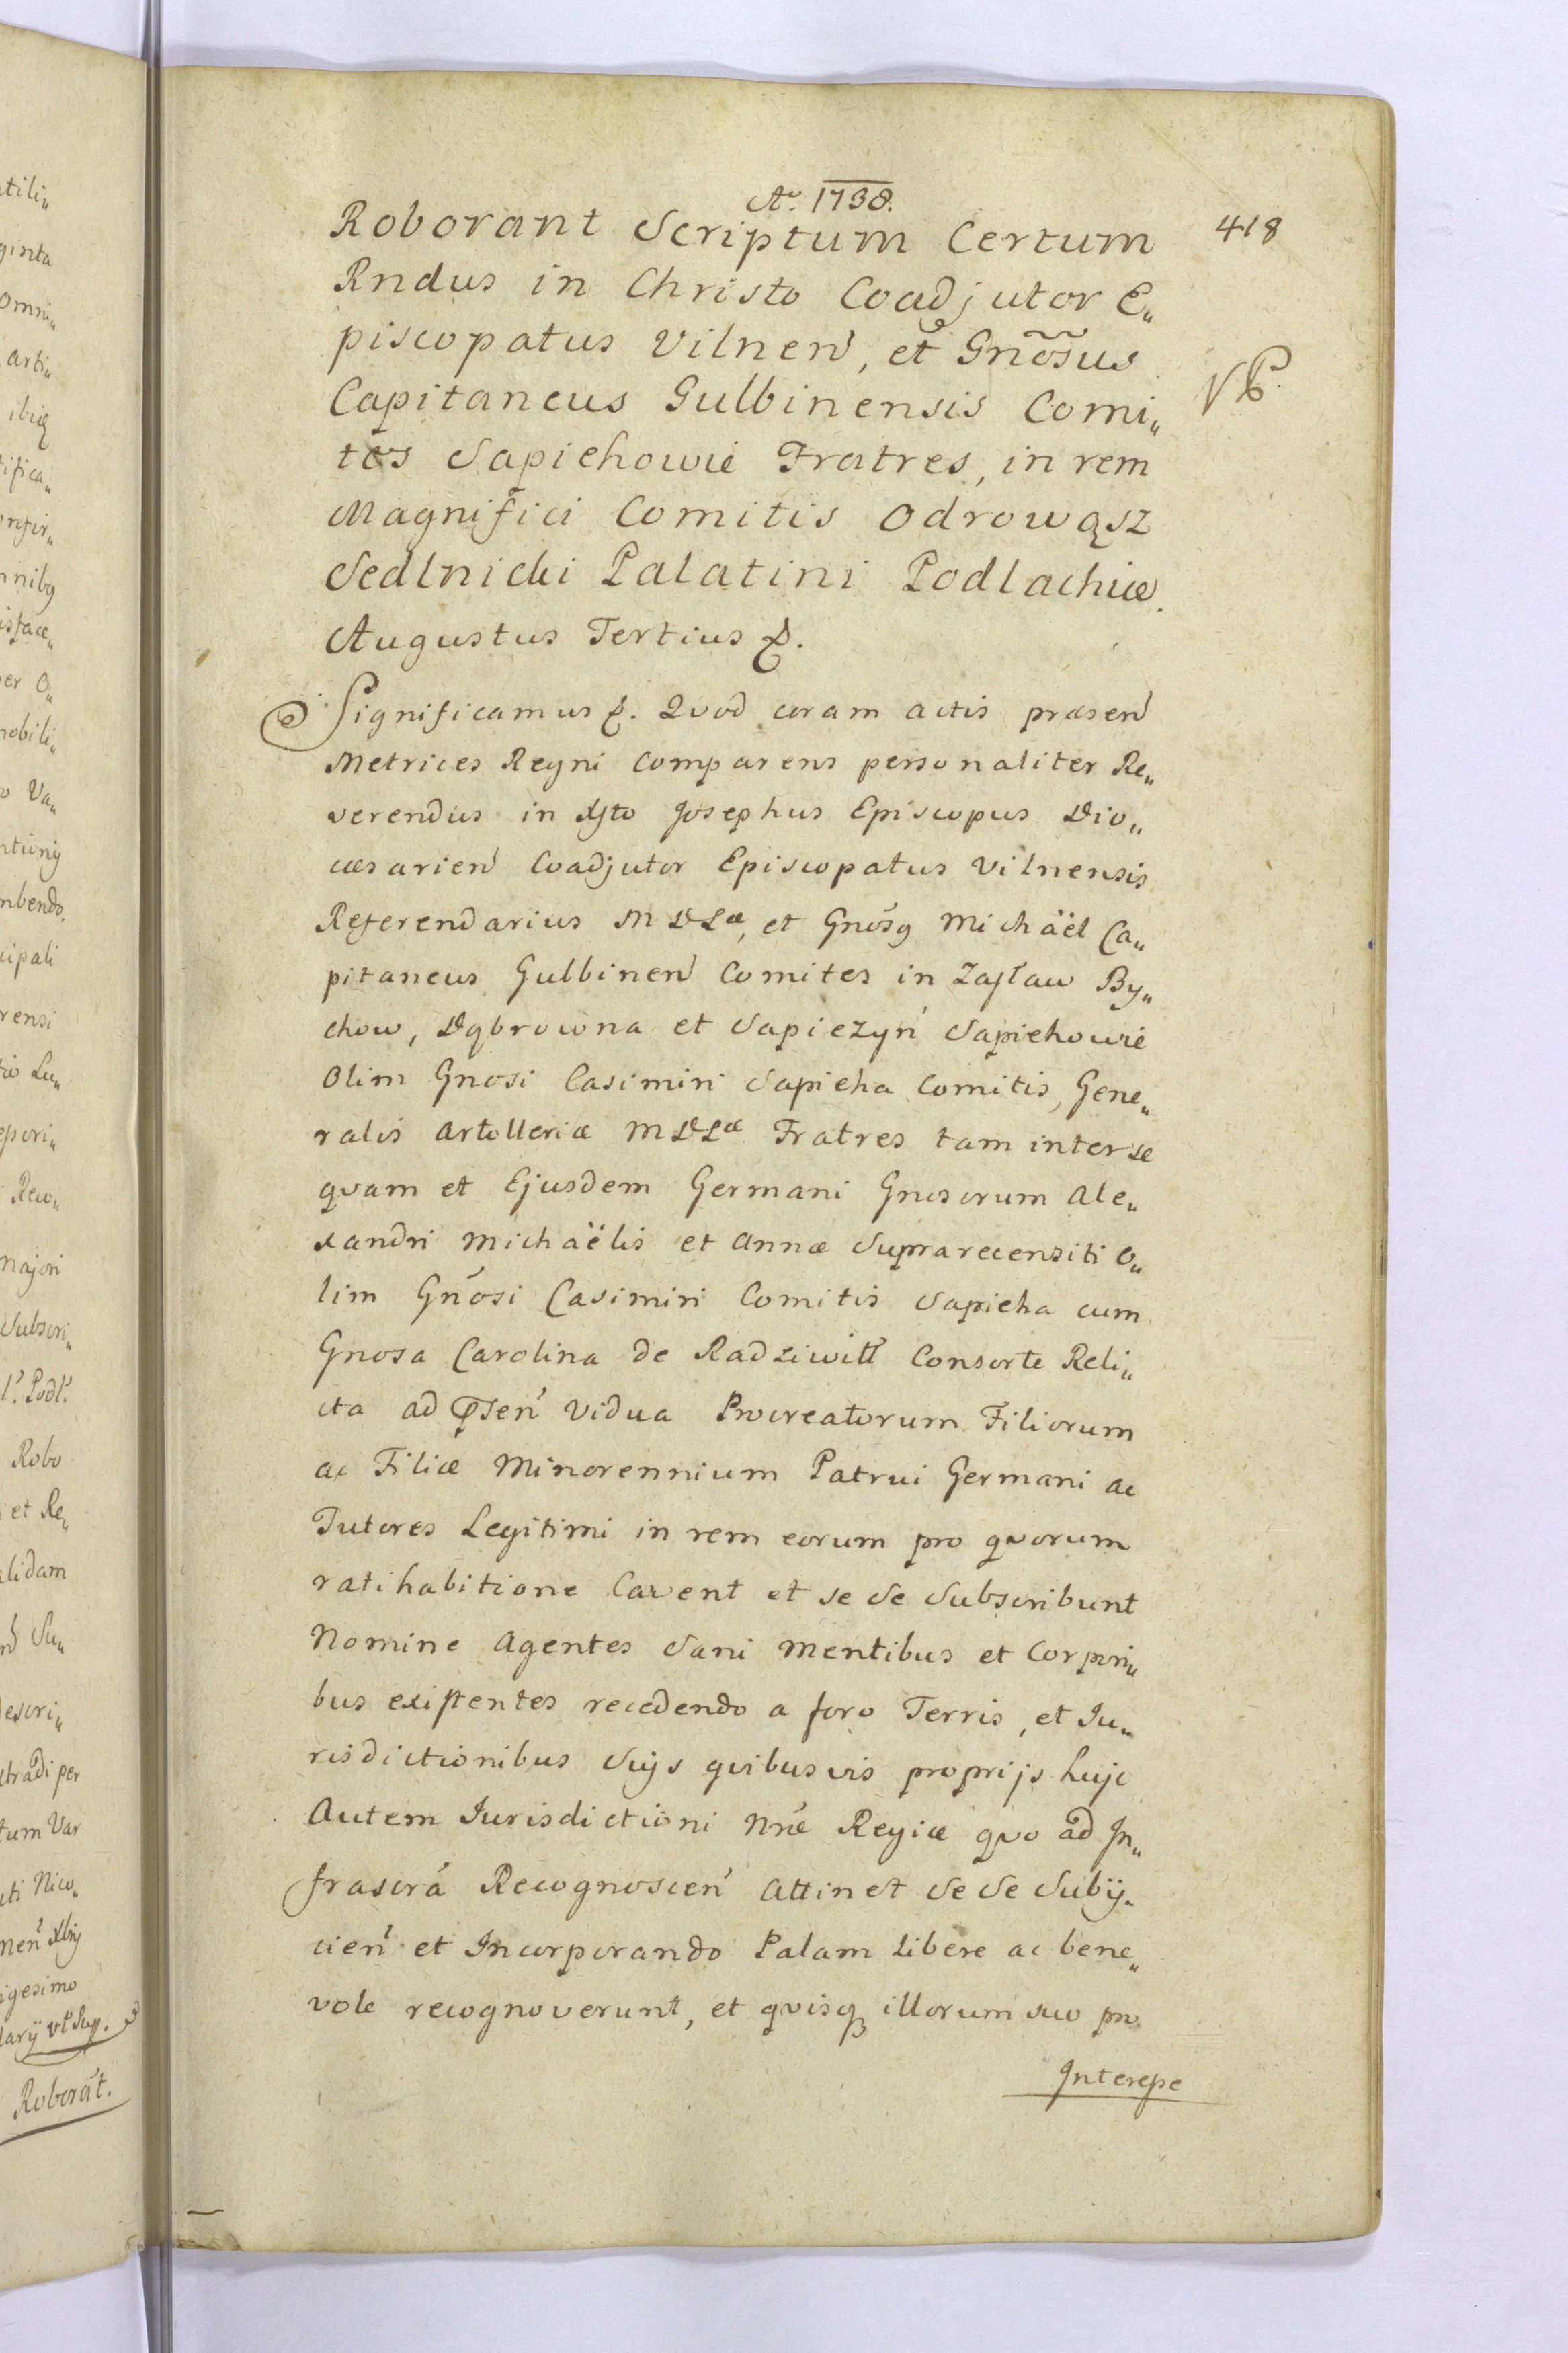 Ao. 1738.
418
Roborant Scriptum Certum
Rndus in Christo Coadjutor E„
piscopatus Vilnen, et Gnosus
Capitaneus Gulbinensis Comi„
tes Sapiehowie Fratres, in rem
Magnifici Comitis Odrowąsz
Sedlnicki Palatini Podlachiæ.
Augustus Tertius &.
Significamus &. Quod coram actis præsen
Metrices Regni Comparens personaliter Re„
verendus in Xsto Josephus Episcopus Dio„
cæsarien Coadjutor Episcopatus Vilnensis
Referendarius M D Læ, et Gnosq Michaël Ca„
pitaneus Gulbinen Comites in Zasław By„
chow, Dąbrowna et Sapiezyn Sapiehowie
Olim Gnosi Casimiri Sapieha Comitis, Gene„
ralis Artolleriæ M D Læ Fratres tam inter se
quam et Ejusdem Germani Gnosorum Ale„
xandri Michaëlis et Annæ Suprarecensiti O„
lim Gnosi Casimiri Comitis Sapieha cum
Gnosa Carolina de Radziwiłł Consorte Reli„
cta ad Psen Vidua Procreatorum Filiorum
ac Filiæ Minorennium Patrui Germani ac
Tutores Legitimi in rem eorum pro quorum
ratihabitione Cavent et se se Subscribunt
Nomine Agentes Sani Mentibus et Corpori„
bus existentes recedendo a foro Terris, et Ju„
risdictionibus Suijs quibusvis proprijs hujc
Autem Jurisdictioni Nræ Regiæ quo ad In„
frascra Recognoscen Attinet se se Subij„
cien et Incorporando Palam Libere ac bene„
vole recognoverunt, et quisq illorum suo pro
Interesse